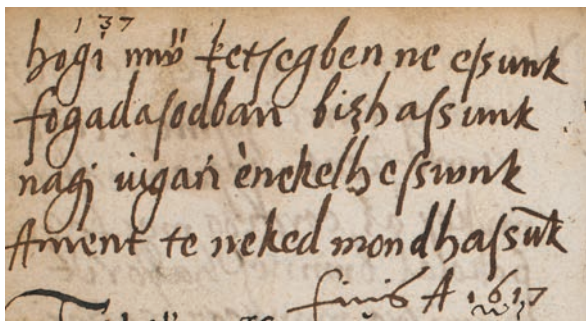 137
hogi mÿ ketſegben ne eſsunk
fogadaſodban bizhaſsunk
nagi uigan enekelheſswnk
Ament te neked mondhaſsuk
finis A 1617